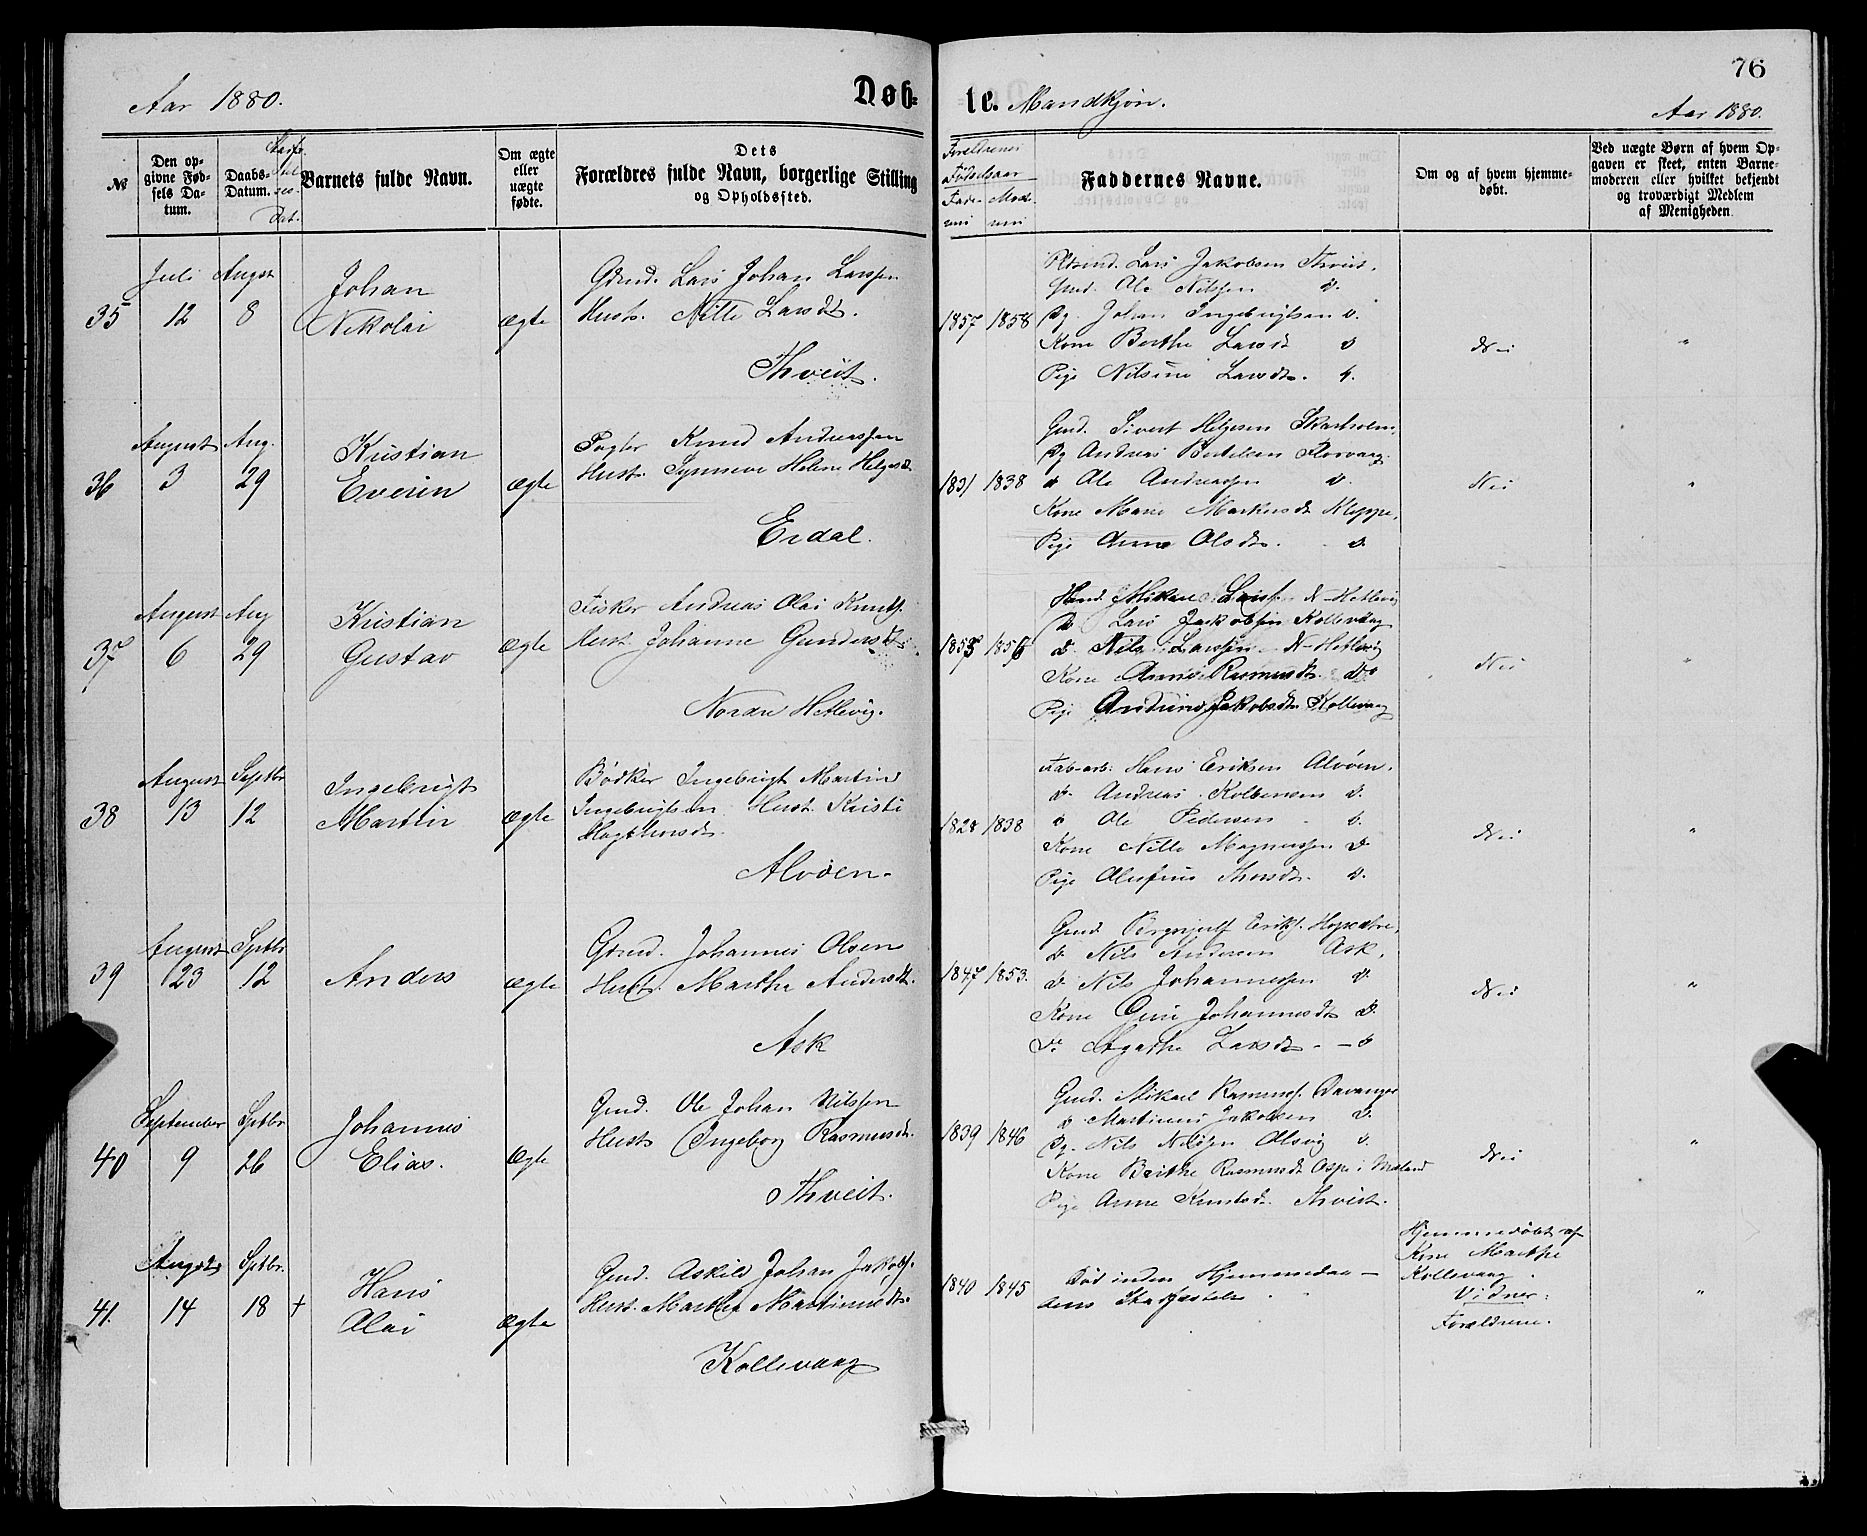 76
Aar 1880.
Døbte. Mandkjøn.
Aar 1880.
№
Den opgivne Fødsels Datum.
Daabs-Datum.
Dat.
Barnets fulde Navn.
Om ægte eller uægte fødte.
Dets Forældres fulde Navn, borgerlige Stilling og Opholdssted.
Forældrenes Fødselsaar
Faddernes Navne.
Om og af hvem hjemmedøbt.
Ved uægte Børn af hvem Opgaven er skeet, enten Barnemoderen eller hvilket bekjendt og troværdigt Medlem af Menigheden.
35
Juli 12
August 8
Johan
Nikolai
Ægte
Grmd. Lars Johan Larssen
Hust. Nille Larsdt.
Thveit.
1857 1858
Lars Jakobsen Thveit.
Grmd. Ole Nilssen d.
Pg. Johan Ingebrigtsen d.
Kone Berthe Larsdt d
Pige Nilsine Larsdt.
Nei
"
36
August 3
Aug. 29
Kristian
Everin
Ægte
Knud Andreassen
Hust. Synneve Helene Helgesd
Erdal.
1831 1838
Grmd. Sivert Helgesen Skarholm.
Pg Andreas Bertelsen Florvaag.
d Ole Andreassen d.
Kone Marie Markusdt Kleppe.
Pige Anna Olsdt. d.
Nei
"
37
August 6
Aug 29
Kristian
Gustav
Ægte
Fisker Andreas Olai Knuts.
Hust. Johanne Gundersdt.
Nordre Hetlevig.
1855 1856
Mikal Larssen N-Hetlevig
D Lars Jakobsen Kollevaag
d. Nils Larssen N-Hetlevig
Kone Anne Rasmusdt. do
Pige Andrine Jakobsdt Kollevaag
Nei
"
38
August 13
Septbr 12
Ingebrigt
Martin
Ægte
Bødker Ingebrigt Martin
Ingebrigtsen Hust. Kristi
Magthonsdt.
Alvøen.
1828 1838
Fab-arb: Hans Eriksen Alvøen.
d. Andreas Kolbensen d.
d Ole Pedersen d.
Kone Nille Magnussen d
Pige Olufine Thorsdt. d.
Nei
"
39
August 23
Septbr 12
Anders
Ægte
Grmd. Johannes Olsen
Hust. Marthe Andersdt.
Ask
1847 1853.
Grmd. Brynjulf Eriks.
d Nils Andersen Ask.
d. Nils Johannessen d
Kone Guri Johannesdt d.
d. Agathe Larsdt - d
Nei
"
40
September 9
Septbr 26
Johannes
Elias.
Ægte
Grmd. Ole Johan Nilssen
Hust Ingeborg Rasmusdt.
Thveit.
1839 1846
Grmd. Mikael Rasmuss. Davanger
d Martinus Jakobsen d.
Pg. Nils Nilssen Olsvig d.
Kone Brithe Rasmusdt Aspe i Mæland
Pige Anne Knutsdt. Thveit.
Nei
"
41.
August 14
Septbr. 18 +
Hans
Olai
Ægte
Grmd. Askild Johan Jakobs.
Hust. Marthe Martinusdt.
Kollevaag
1840 1845
Død inden Hjemmedaabens Stadfæstelse
Hjemmedøbt af
Kone Marthe
Kollevaag.
Vidner:
Forældrene.
"